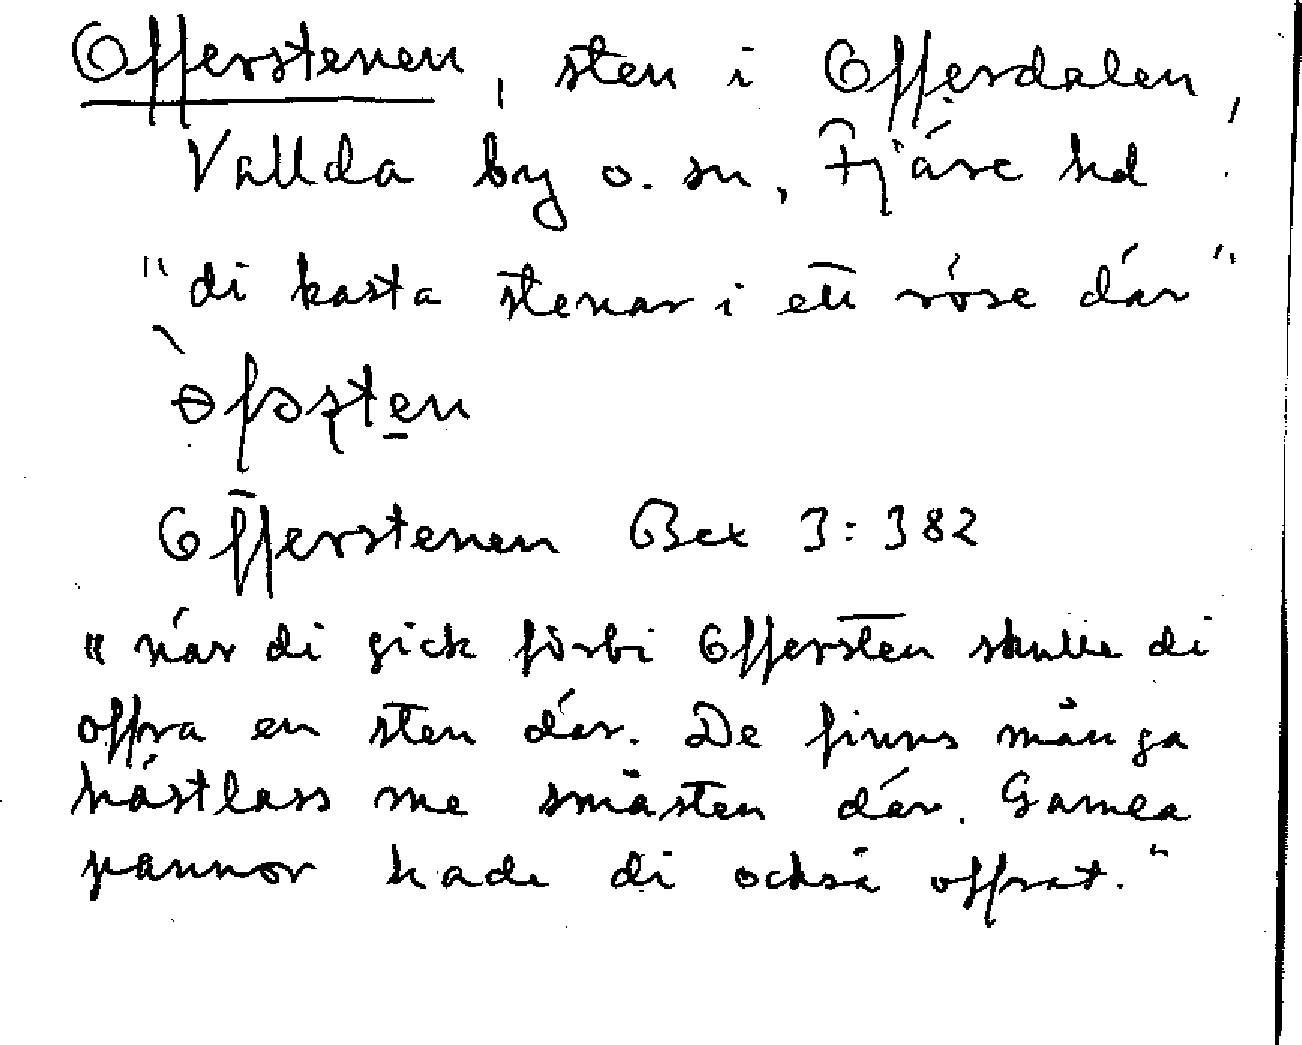 Offerstenen, sten i Offerdalen,
Vallda by o. sn, Fjäre hd.
"di kasta stenar i ett röse där"
Offerstenen Bex 3:382
"när di gick förbi Offersten skulle di
offra en sten där. De finns många
hästlass me småsten där. Gamla
pannor hade di också offrat."